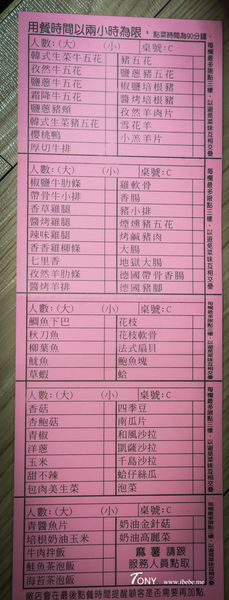 用餐時間以兩小時為限，點菜時間為90分鐘。
人數:(大) (小) 桌號:C
韓式生菜牛五花 豬五花
孜然牛五花 鹽蔥豬五花
鹽蔥牛五花 椒鹽培根豬
霜降牛五花 醬烤培根豬
鹽蔥豬頰 孜然羊肉片
韓式生菜豬五花 雪花羊
櫻桃鴨 小羔羊片
厚切牛排
每欄最多限點三樣，以避免菜味互相交叠
人數:(大) (小) 桌號:C
椒鹽牛肋條 雞軟骨
帶骨牛小排 香腸
香草雞腿 豬小排
醬烤雞腿 煙燻豬五花
辣味雞腿 烤鹹豬肉
香香雞柳條 大腸
七里香 地獄大腸
孜然羊肋條 德國帶骨香腸
醬烤羊排 德國腳香腸
每欄最多限點三樣，以避免菜味互相交叠
人數:(大) (小) 桌號:C
鯛魚下巴 花枝
秋刀魚 花枝軟骨
柳葉魚 法式扇貝
魷魚 鮑魚塊
草蝦 蛤
每欄最多限點三樣，以避免菜味互相交叠
人數:(大) (小) 桌號:C
香菇 四季豆
杏鮑菇 南瓜片
青椒 和風沙拉
洋蔥 凱薩沙拉
玉米 千島沙拉
甜不辣 蛤仔絲瓜
包肉美生菜 泡菜
每欄最多限點三樣，以避免菜味互相交叠
人數:(大) (小) 桌號:C
青醬魚片 奶油金針菇
培根奶油玉米 奶油高麗菜
牛肉拌飯 麻薯請跟
鮭魚茶泡飯 服務人員點取
海苔茶泡飯
TONY www.ibebe.me
飯店會在最後點餐時間提醒顧客是否需要再加點.